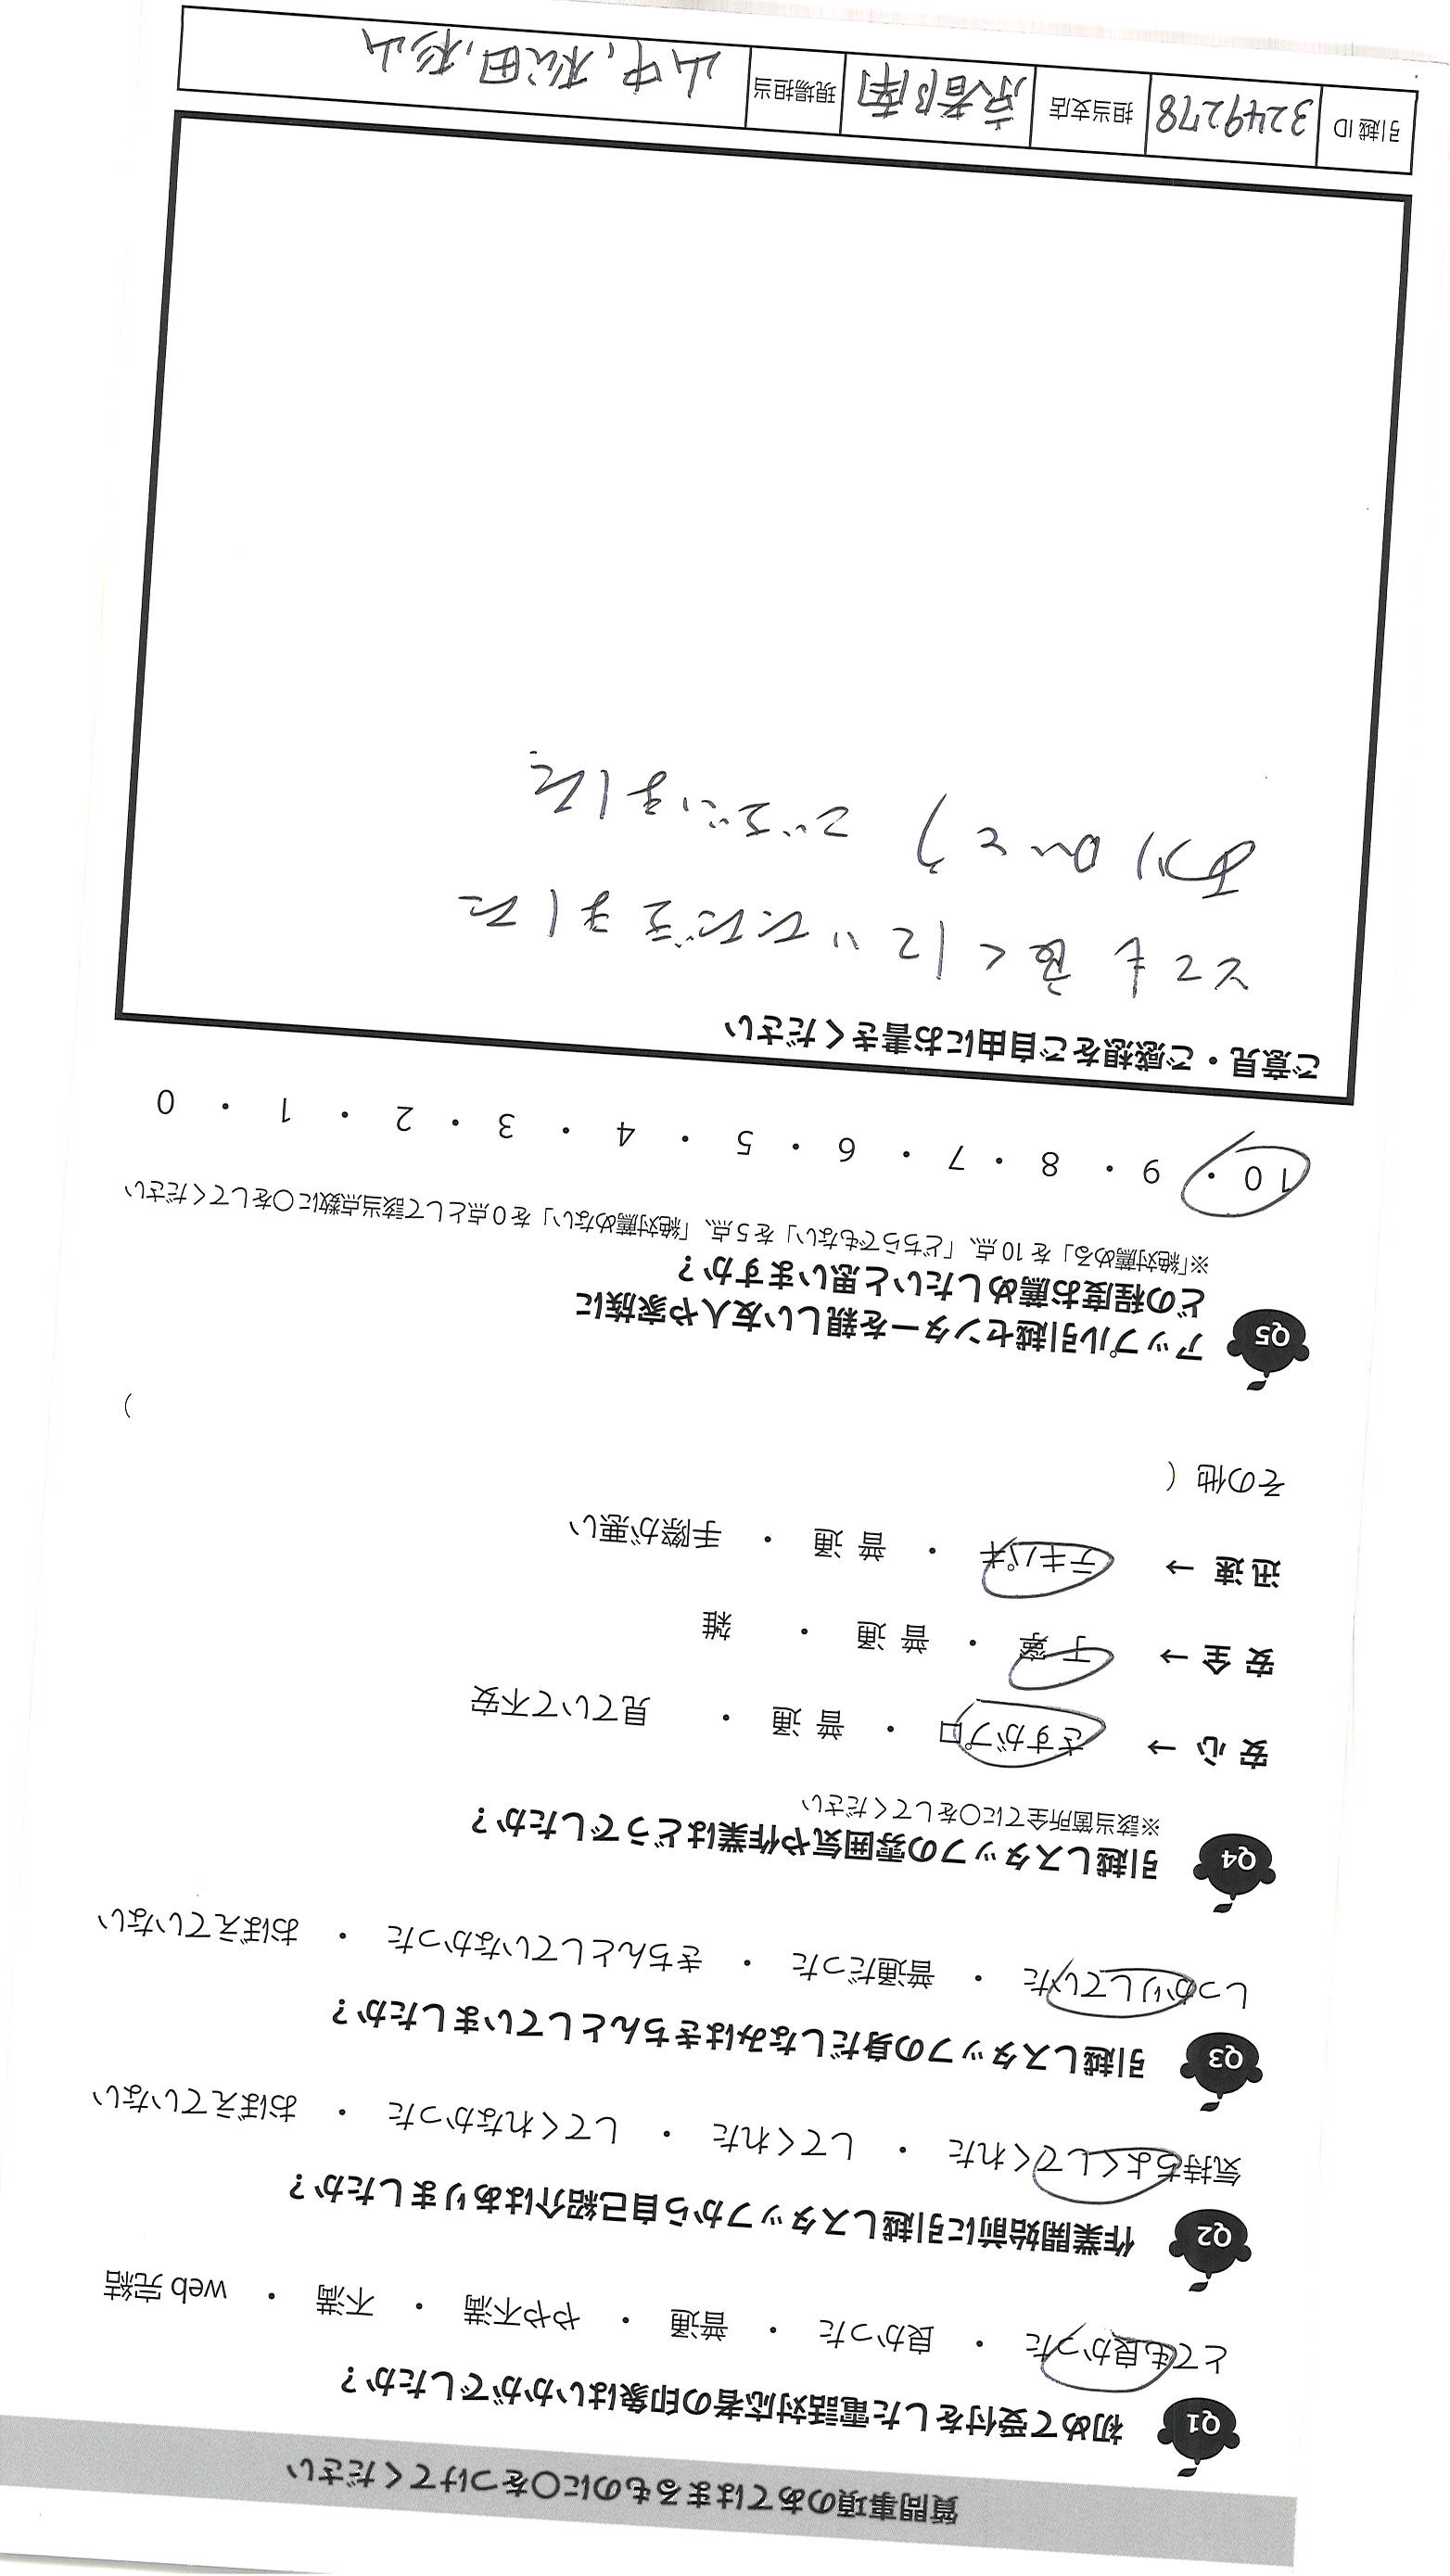 質問事項のあてはまるものに〇をつけてください
Q1 初めて受付をした電話対応者の印象はいかがでしたか？
とても良かった ・ 良かった ・ 普通 ・ やや不満 ・ 不満 ・ web 完結
Q2 作業開始前に引越しスタッフから自己紹介はありましたか？
気持ちよくしてくれた ・ してくれた ・ してくれなかった ・ おぼえていない
Q3 引越しスタッフの身だしなみはきちんとしていましたか？
しっかりしていた ・ 普通だった ・ きちんとしていなかった ・ おぼえていない
Q4 引越しスタッフの雰囲気や作業はどうでしたか？
※該当箇所全てに〇をしてください
安 心 → さすがプロ ・ 普 通 ・ 見ていて不安
安 全 → 丁 寧 ・ 普 通 ・ 雑
迅 速 → テキパキ ・ 普 通 ・ 手際が悪い
その他（ ）
Q5 アップル引越センターを親しい友人や家族に
どの程度お薦めしたいと思いますか？
※「絶対薦める」を 10 点、「どちらでもない」を 5 点、「絶対薦めない」を 0 点として該当点数に〇をしてください
10 ・ 9 ・ 8 ・ 7 ・ 6 ・ 5 ・ 4 ・ 3 ・ 2 ・ 1 ・ 0
ご意見・ご感想をご自由にお書きください
とても良くしていただきました
ありがとうございました
引越 ID 3249278 担当支店 京都南 現場担当 山中, 松田, 杉山